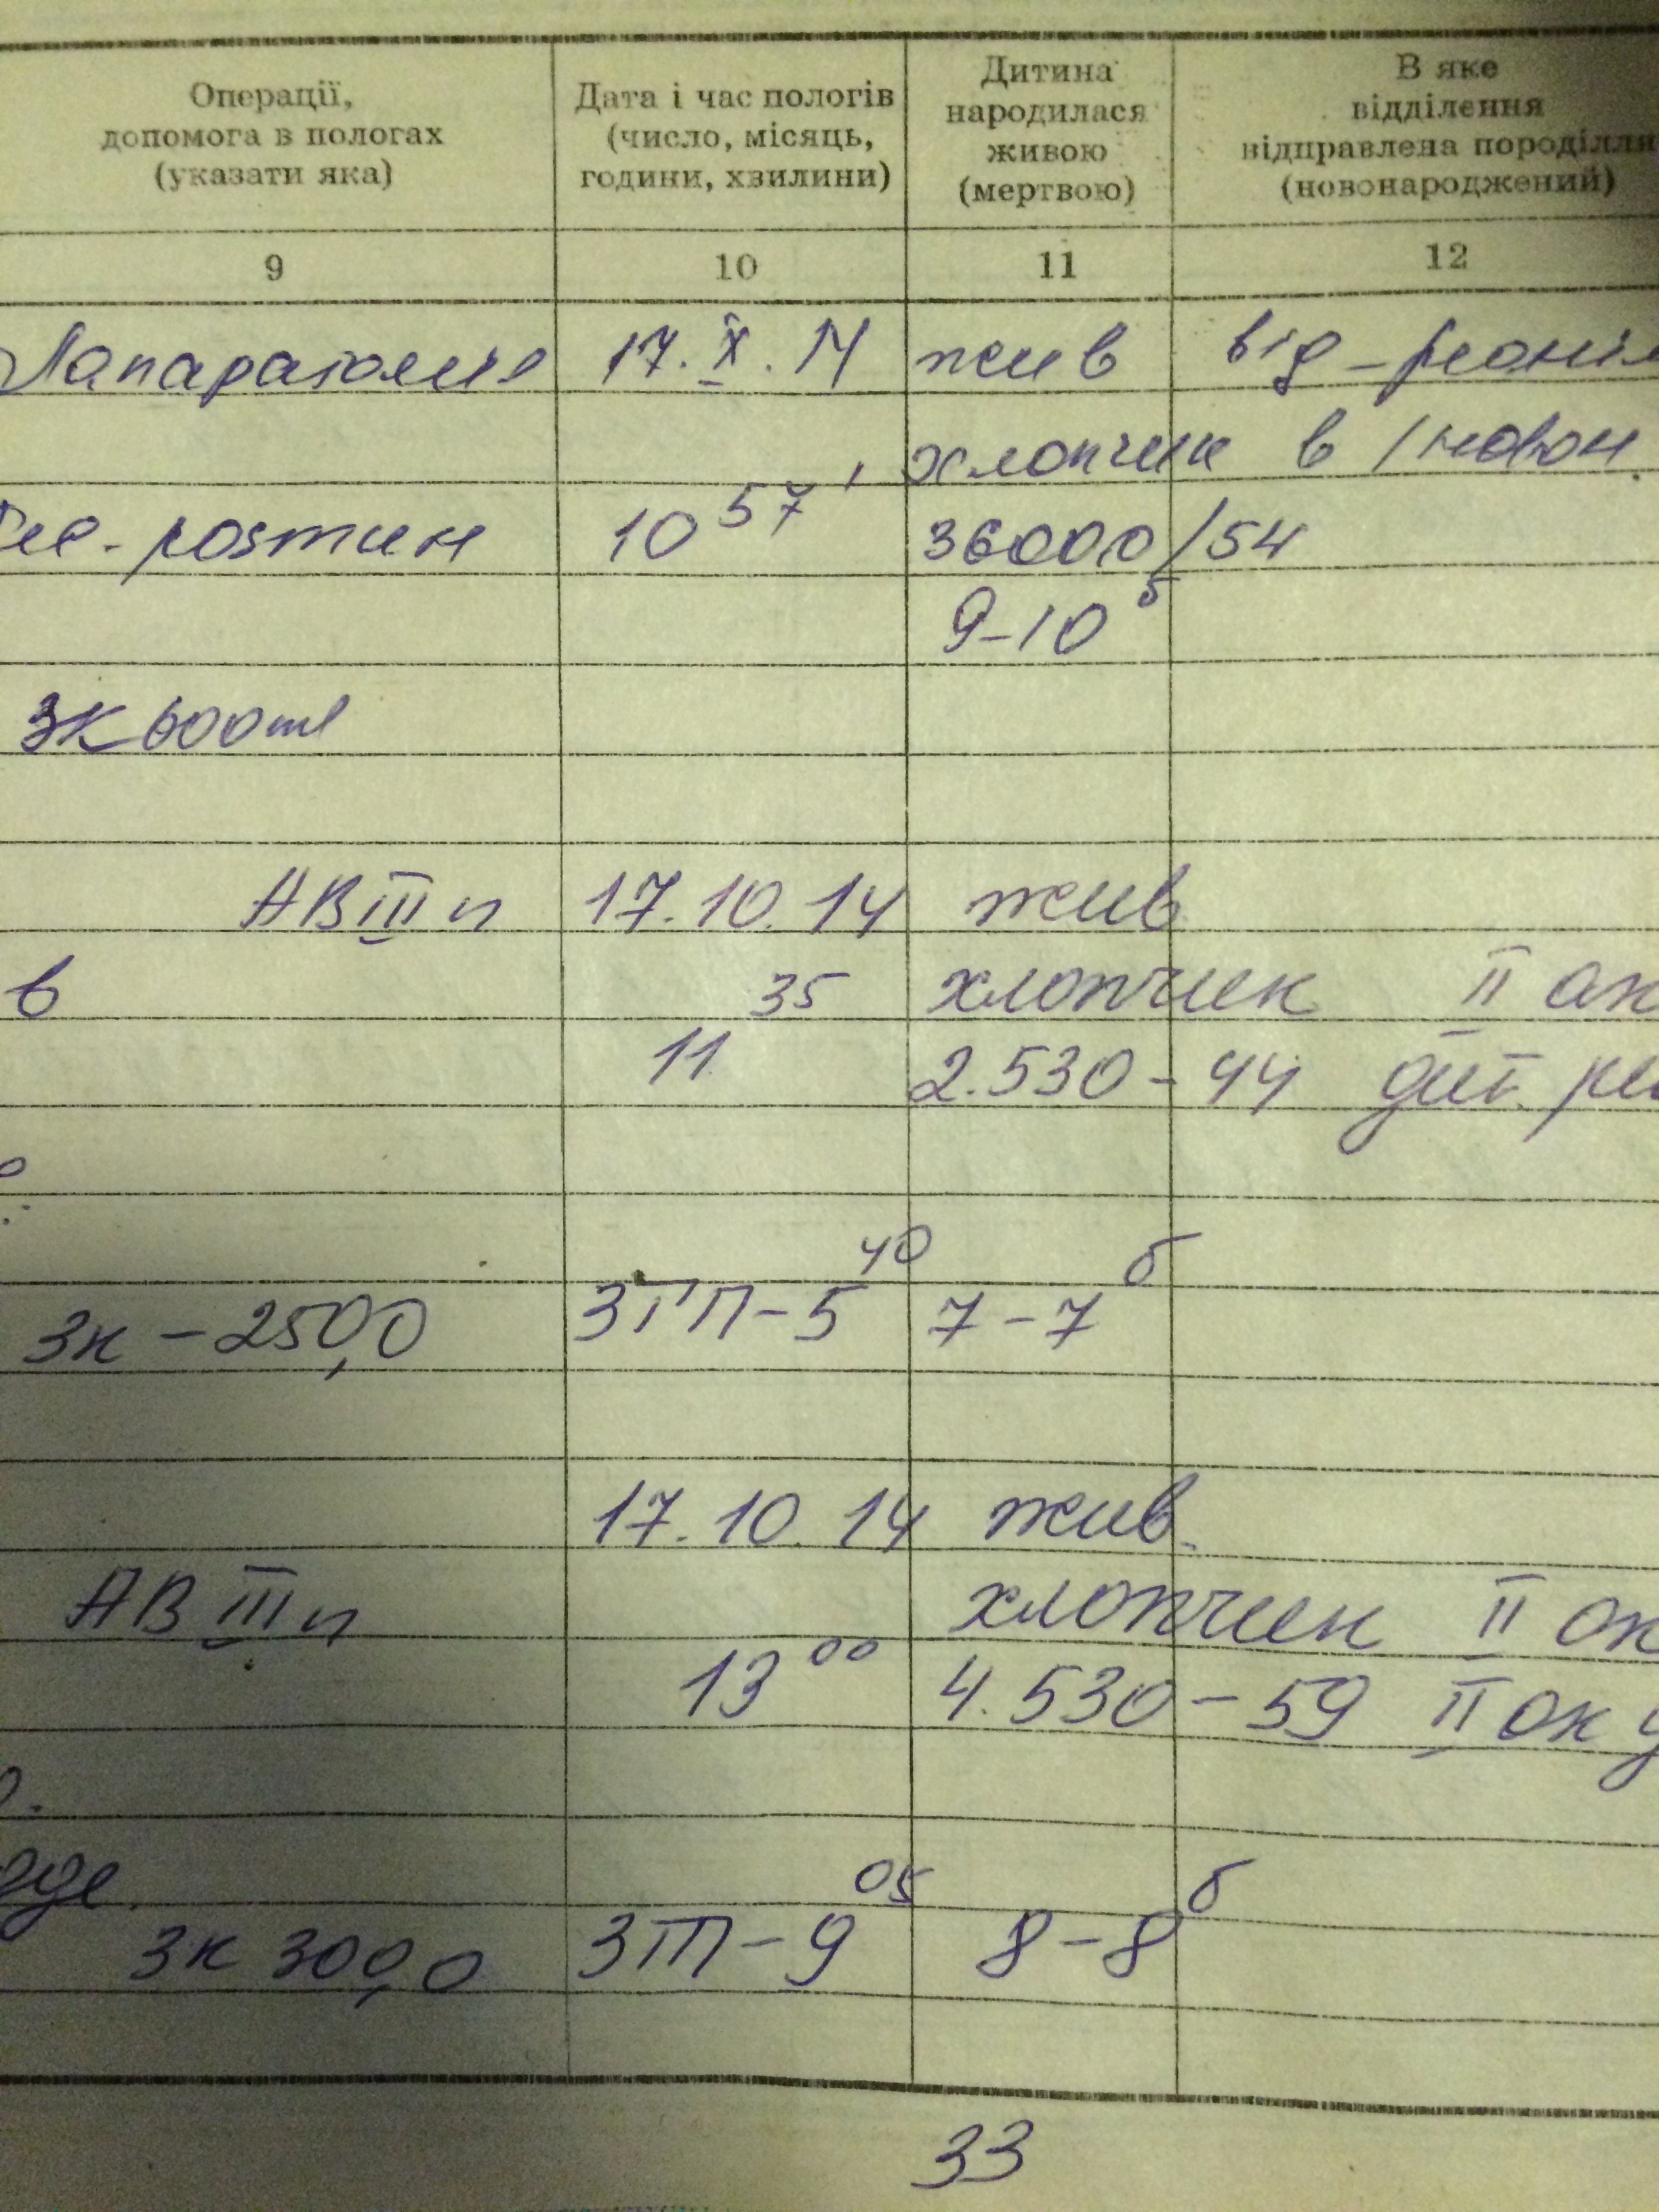 Операції,
допомога в пологах
(указати яка)
Дата і час пологів
(число, місяць,
години, хвилини)
Дитина
народилася
живою
(мертвою)
В яке
відділення
відправлена породілля
(новонароджений)
9 10 11 12
Лапаратомия 17.X.14 жив від-реанім
хлопчик в / новон.
розтин 10 57' 36000/54
9-10 б
ЗК 600ml
АВ III п 17.10.14 жив
в 35 хлопчик II ак
11 2.530-44 дит. ре
40 б
Зк - 250,0 ЗТП-5 7-7
17.10.14 жив.
АВ III п хлопчик II ак
13 00 4.530-59 II ак у
05 б
Зк 300,0 ЗТП-9 8-8
33